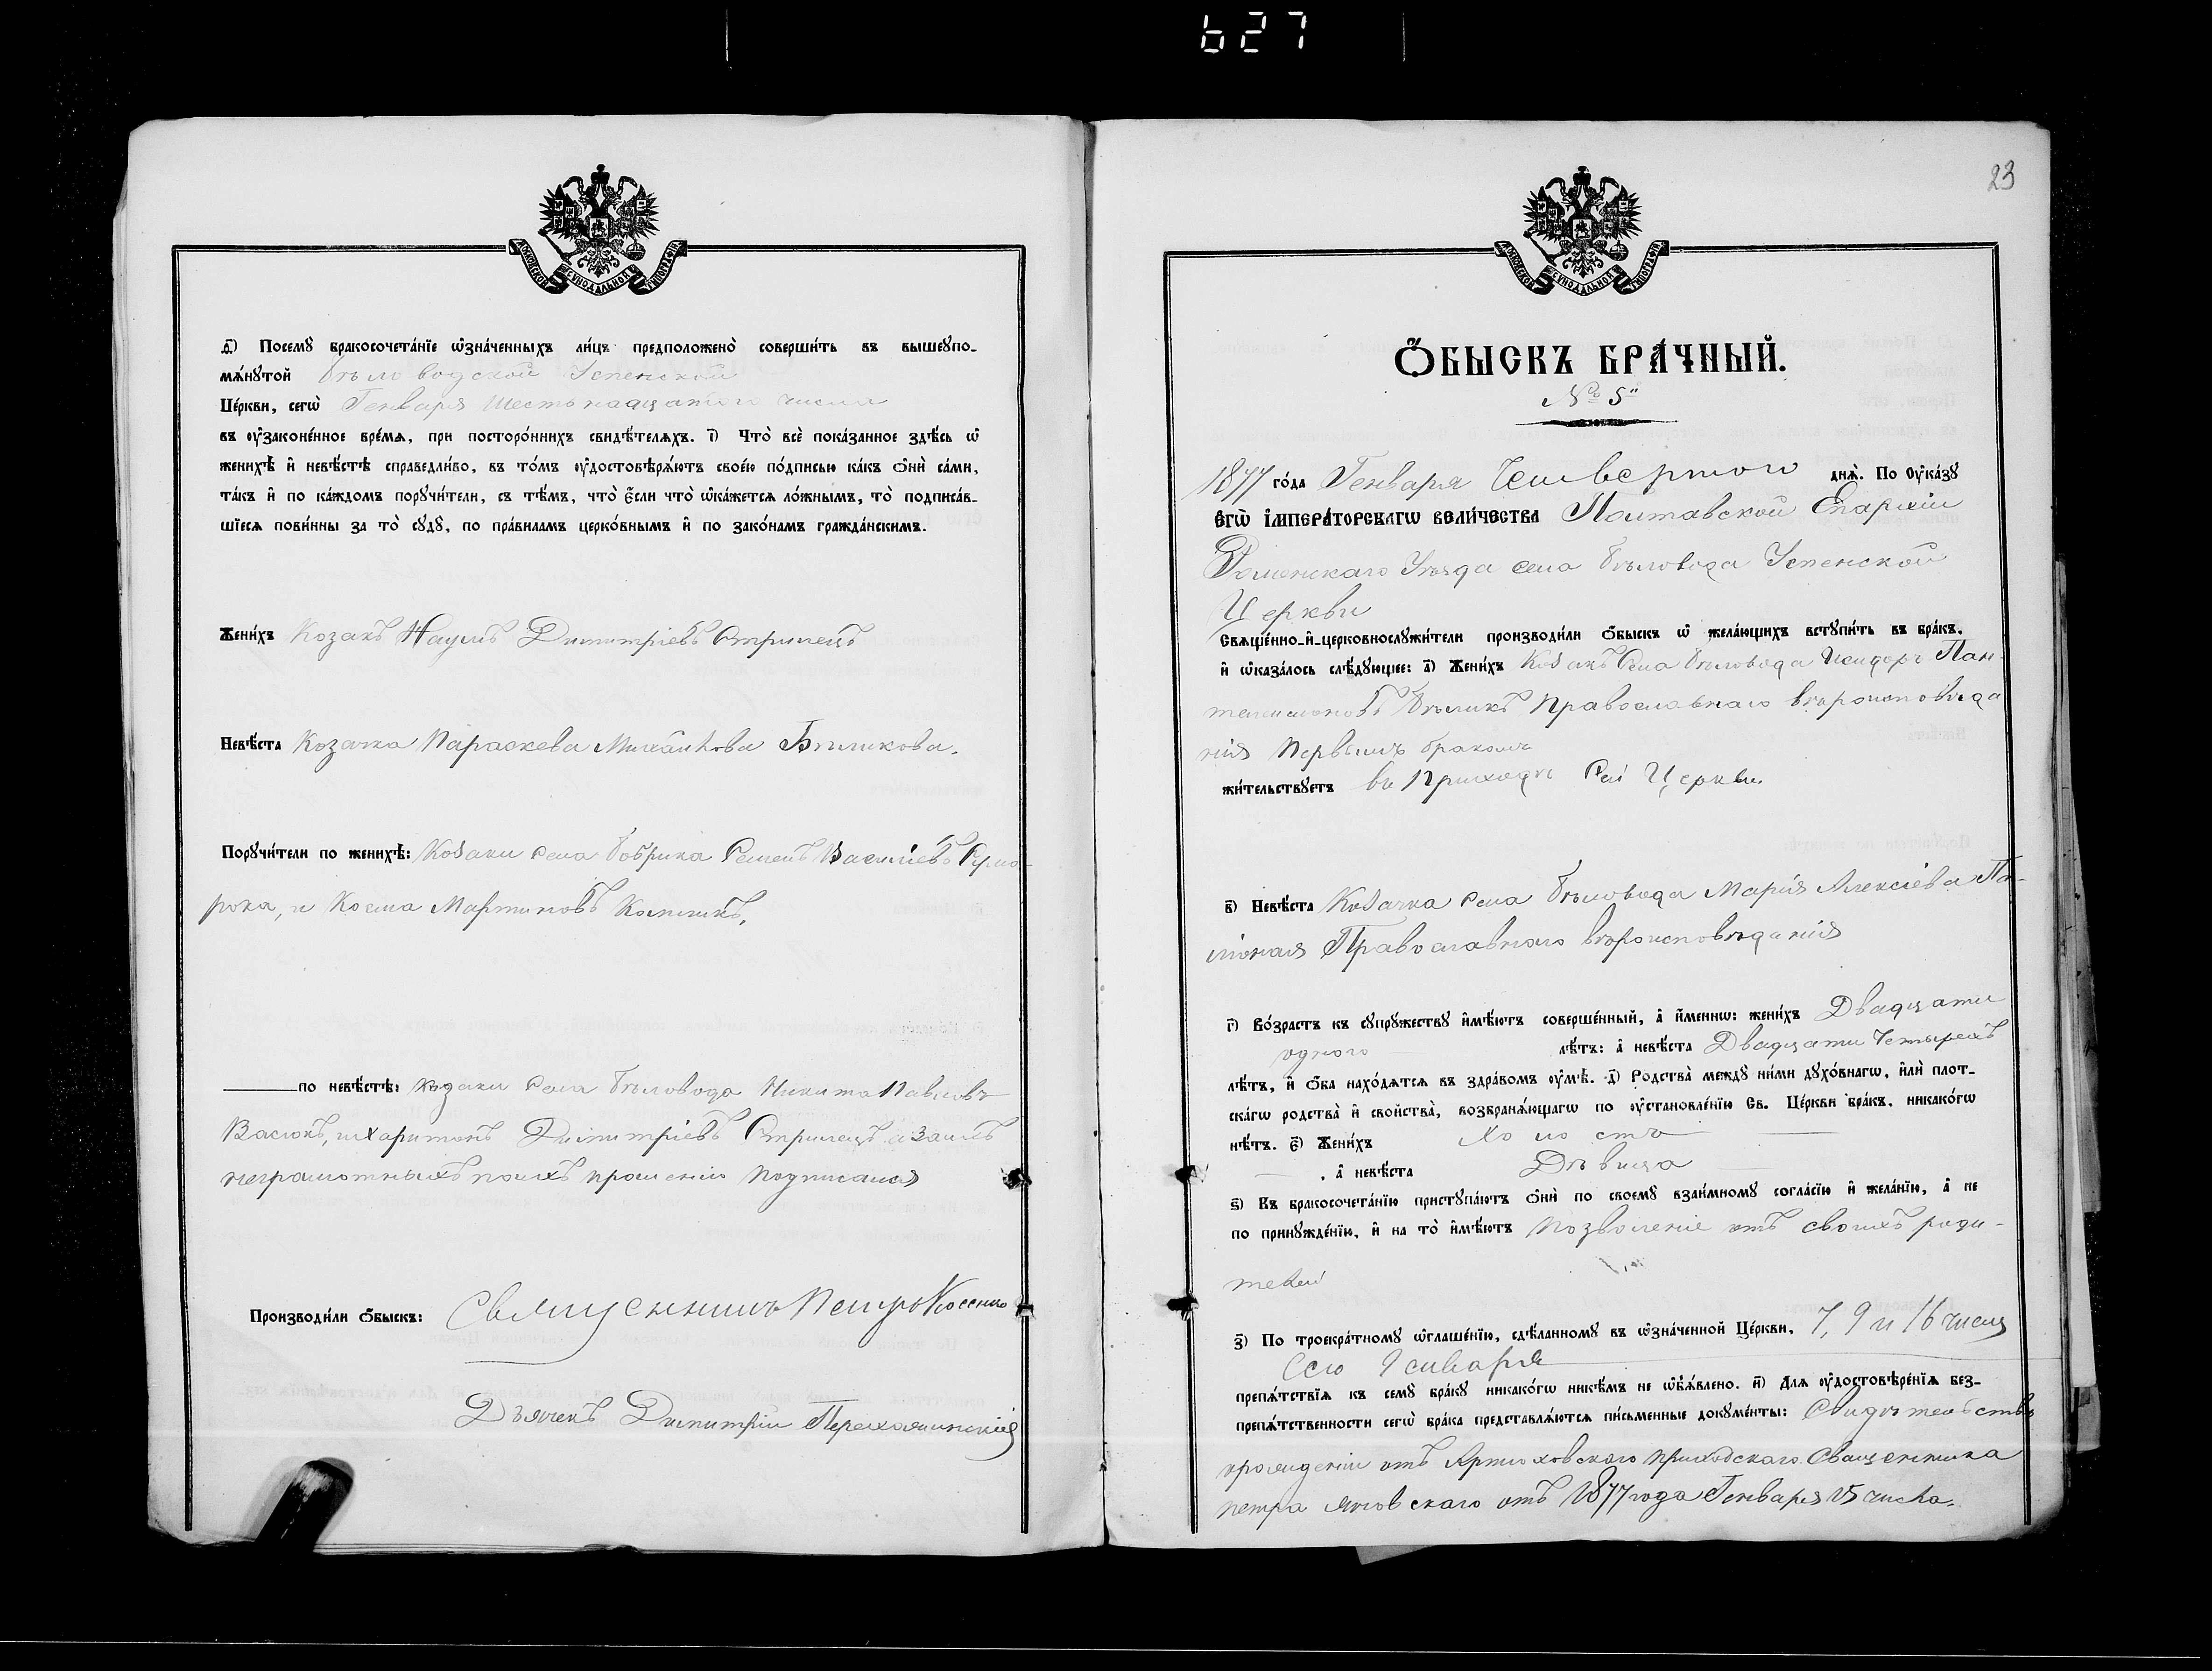 627
МОСКОВСКОЙ СѴНОДАЛЬНОЙ ТИПОГРАФІИ
ѳ҃) Посемꙋ бракосочета́нїе ѡ҆зна́ченныхъ ли́цъ предположено̀ соверши́ть въ вышеꙋпо-
мѧ́нꙋтой Бѣловодской Успенской
Це́ркви, сегѡ̀ Генваря шестьнадцатого числа
въ ᲂу҆законе́нное вре́мѧ, при посторо́ннихъ свидѣ́телѧхъ. і҃) Что̀ всѐ пока́занное здѣ́сь ѡ҆
женихѣ̀ и҆ невѣ́стѣ справедли́во, въ то́мъ ᲂу҆достовѣрѧ́ютъ свое́ю по́дписью ка́къ ѻ҆нѝ са́ми,
та́къ и҆ по ка́ждомъ порꙋчи́тели, съ тѣ́мъ, что̀ є҆́сли что̀ ѡ҆ка́жетсѧ ло́жнымъ, то̀ подписа́в-
шїесѧ пови́нны за то̀ сꙋдꙋ̀, по пра́виламъ церко́внымъ и҆ по зако́намъ гражда́нскимъ.
Жени́хъ Козакъ Наумъ Димитріевъ Стрилецъ
Невѣ́ста Козачка Параскева Михайлова Бѣликова.
Порꙋчи́тели по женихѣ̀: Козаки села Бобрика Семенъ Василіевъ
и Косма Мартиновъ
по невѣ́стѣ: козаки села Бѣловода Никита Павловъ
Васюкъ, и Харитонъ Димитріевъ Стрилецъ а за ихъ
неграмотныхъ по ихъ прошенію подписался
Производи́ли ѻ҆́быскъ: Священникъ Петръ
Дьячекъ Димитрій
23
МОСКОВСКОЙ СѴНОДАЛЬНОЙ ТИПОГРАФІИ
Ѻ҆́БЫСКЪ БРА́ЧНЫЙ.
№ 5й
1877 го́да Генваря Четвертого днѧ̀. По Оу҆ка́зꙋ
Є҆ГѠ̀ И҆МПЕРА́ТОРСКАГѠ ВЕЛИ́ЧЕСТВА Полтавской Епархіи
Роменскаго Уѣзда села Бѣловода Успенской
Церкви
Свѧще́нно-и҆-церковнослꙋжи́тели производи́ли ѻ҆́быскъ ѡ҆ жела́ющихъ встꙋпи́ть въ бра́къ,
и҆ ѡ҆каза́лось слѣ́дꙋющее: а҃) Жени́хъ Козакъ села Бѣловода Исидоръ Пан-
телеимоновъ Бѣликъ Православнаго вѣроисповѣда
нія Первымъ бракомъ
жи́тельствꙋетъ въ Приходѣ сей Церкви.
в҃) Невѣ́ста Козачка села Бѣловода Марія Алексіева
Православнаго вѣроисповѣданія
г҃) Во́зрастъ къ сꙋпрꙋ́жествꙋ и҆мѣ́ютъ соверше́нный, а҆ и҆́меннѡ: жени́хъ Двадцати
одного лѣ́тъ: а҆ невѣ́ста Двадцати Четырехъ
лѣ́тъ, и҆ ѻ҆́ба нахо́дѧтсѧ въ здра́вомъ ᲂу҆мѣ̀. д҃) Родства̀ междꙋ ни́ми дꙋхо́внагѡ, и҆лѝ плот-
ска́гѡ родства̀ и҆ свойства̀, возбранѧ́ющагѡ по ᲂу҆становле́нїю Св. Це́ркви бра́къ, никако́гѡ
нѣ́тъ. є҃) Жени́хъ холостъ
, а҆ невѣ́ста Дѣвица
ѕ҃) Въ бракосочета́нїю пристꙋпа́ютъ ѻ҆нѝ по своемꙋ̀ взаи́мномꙋ согла́сїю и҆ жела́нїю, а҆ не
по принꙋжде́нїю, и҆ на то̀ и҆мѣ́ютъ позволеніе отъ своихъ роди-
телей
з҃) По троекра́тномꙋ ѡ҆глаше́нїю, сдѣ́ланномꙋ въ ѡ҆зна́ченной Це́ркви, 7, 9 и 16 числъ
сего Генваря
препѧ́тствїѧ къ семꙋ̀ бра́кꙋ никако́гѡ никѣ́мъ не ѡ҆б̾ѧ́влено. и҃) Длѧ ᲂу҆достовѣре́нїѧ без-
препѧ́тственности сегѡ̀ бра́ка представлѧ́ютсѧ пи́сьменные докꙋме́нты: Свидѣтельство
о рождении отъ Артюховского приходскаго Священника
Петра отъ 1877 года Генваря 15 числа.